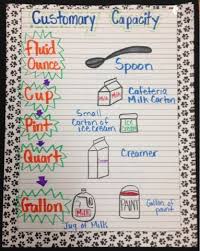 Customary Capacity
Fluid
Ounce
Spoon
Cup
Milk
Milk
Cafeteria
Milk Carton
Pint
Small
Carton of
ice cream
ICE
CREAM
Quart
Creamer
Gallon
MILK
Jug of Milk
PAINT
Gallon of
paint